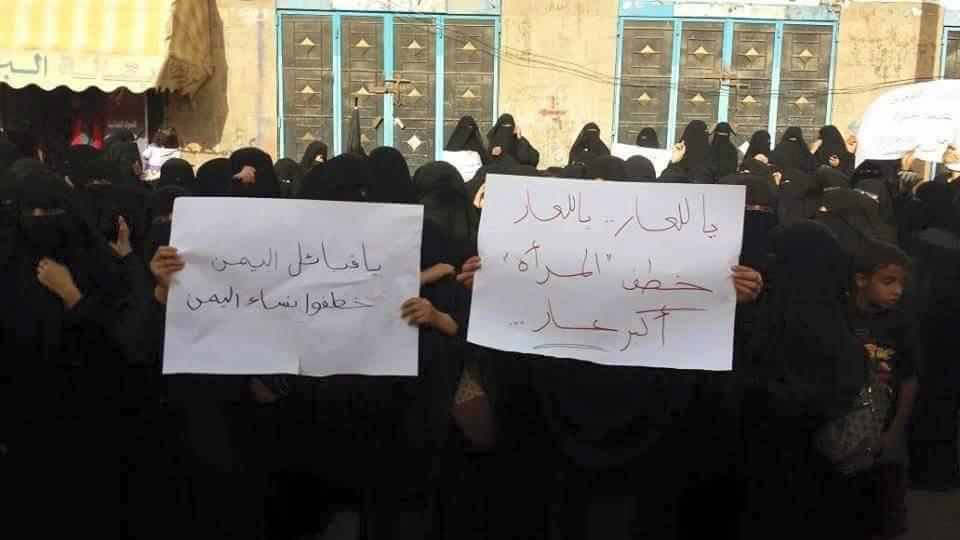 يا قبائل اليمن
خطفوا نساء اليمن
يا للعار.. يا للعار
خطف "المرأة"
أكبر عار...